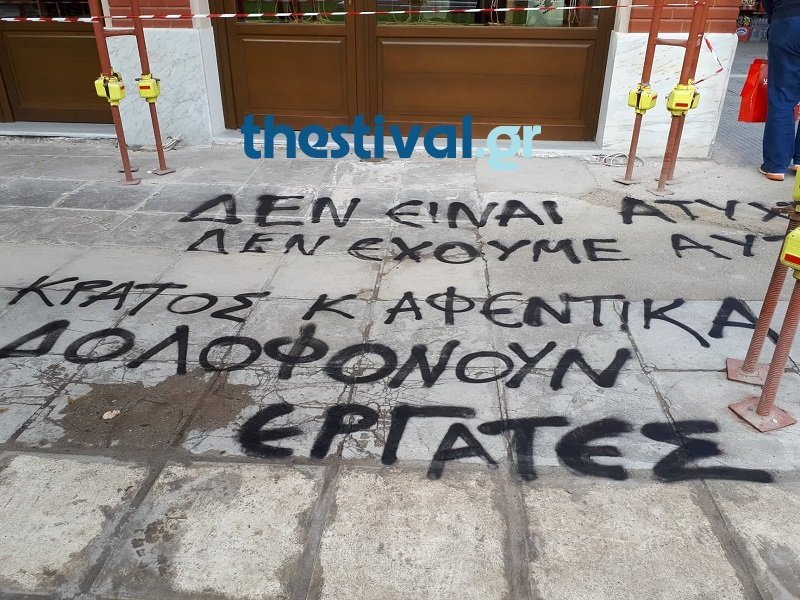 thestival.gr
ΔΕΝ ΕΙΝΑΙ
ΔΕΝ ΕΧΟΥΜΕ
ΚΡΑΤΟΣ Κ ΑΦΕΝΤΙΚΑ
ΔΟΛΟΦΟΝΟΥΝ
ΕΡΓΑΤΕΣ